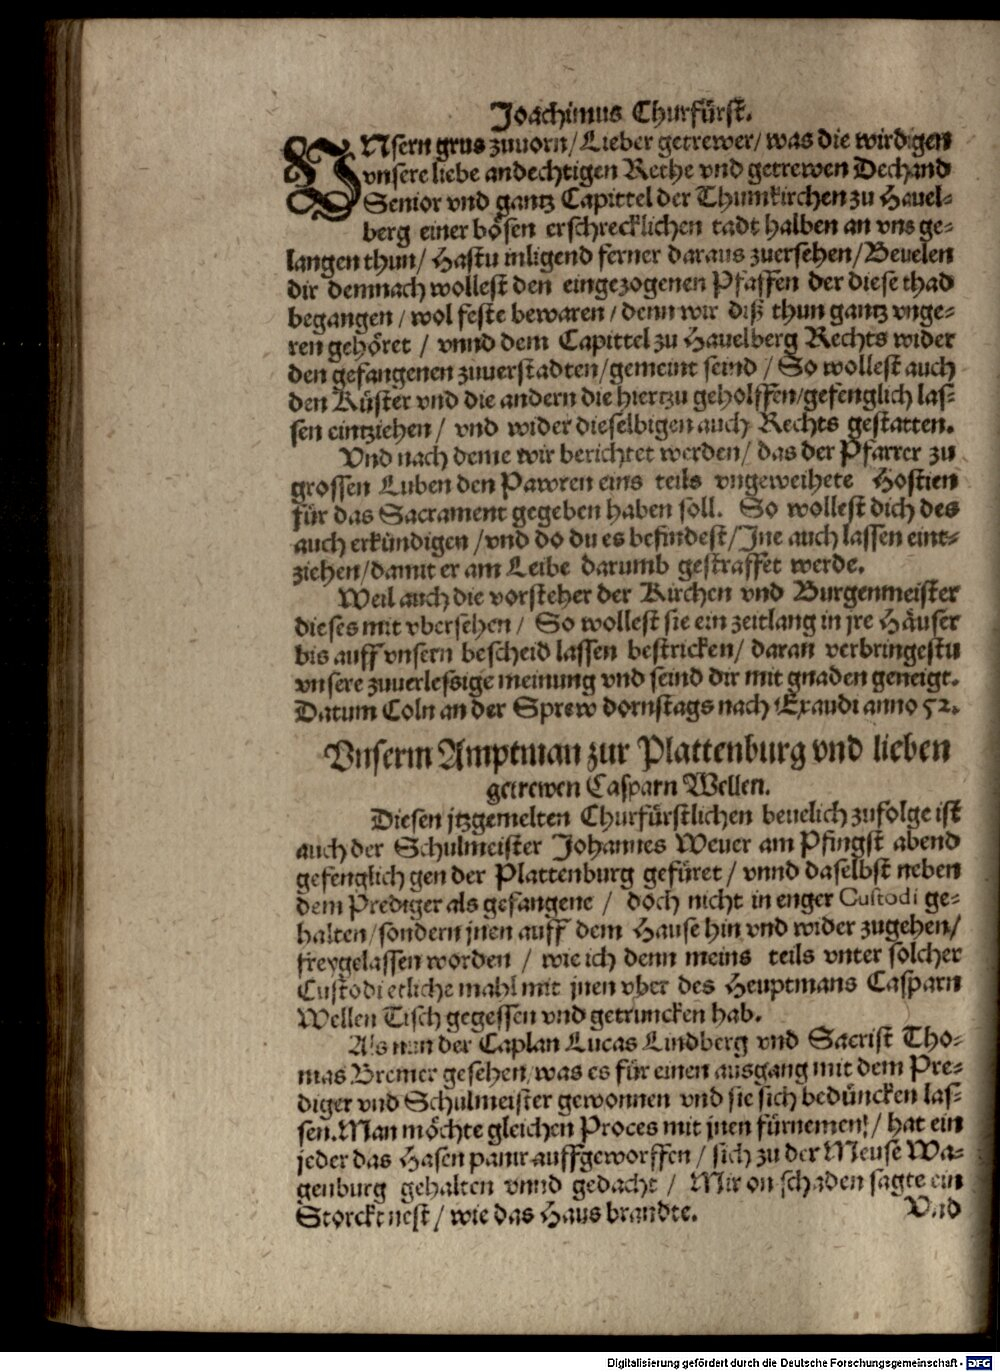 Joachimus Churfürst.
VNsern grus zuuorn/ Lieber getrewer/ was die wirdigen
vnsere liebe andechtigen Rethe vnd getrewen Dechand
Senior vnd gantz Capittel der Thumkirchen zu Hauel-
berg einer bösen erschrecklichen tadt halben an vns ge-
langen thun/ Hastu inligend ferner daraus zuersehen/ Beuelen
dir demnach wollest den eingezogenen Pfaffen der diese thad
begangen / wol feste bewaren / denn wir diß thun gantz vnge-
ren gehöret / vnnd dem Capittel zu Hauelberg Rechts wider
den gefangenen zuuerstadten/ gemeint seind / So wollest auch
den Küster vnd die andern die hiertzu geholffen/ gefenglich las-
sen eintziehen / vnd wider dieselbigen auch Rechts gestatten.
Vnd nach deme wir berichtet werden/ das der Pfarrer zu
grossen Luben den Pawren eins teils vngeweihete Hostien
für das Sacrament gegeben haben soll. So wollest dich des
auch erkündigen / vnd do du es befindest / Jne auch lassen eint-
ziehen/ damit er am Leibe darumb gestraffet werde.
Weil auch die vorsteher der Kirchen vnd Burgenmeister
dieses mit vbersehen / So wollest sie ein zeitlang in jre Häuser
bis auff vnsern bescheid lassen bestricken/ daran verbringestu
vnsere zuuerlessige meinung vnd seind dir mit gnaden geneigt.
Datum Coln an der Sprew dornstags nach Exaudi anno 52.
Vnserm Amptman zur Plattenburg vnd lieben
getrewen Casparn Wellen.
Diesen jtzgemelten Churfürstlichen beuelich zufolge ist
auch der Schulmeister Johannes Weuer am Pfingst abend
gefenglich gen der Plattenburg gefüret / vnnd daselbst neben
dem Prediger als gefangene / doch nicht in enger Custodi ge-
halten/ sondern jnen auff dem Hause hin vnd wider zugehen/
freygelassen worden / wie ich denn meins teils vnter solcher
Custodi etliche mahl mit jnen vber des Heuptmans Casparn
Wellen Tisch gegessen vnd getruncken hab.
Als nun der Caplan Lucas Lindberg vnd Sacrist Tho-
mas Bremer gesehen/ was es für einen ausgang mit dem Pre-
diger vnd Schulmeister gewonnen vnd sie sich bedüncken las-
sen. Man möchte gleichen Proces mit jnen fürnemen/ hat ein
jeder das Hasen panir auffgeworffen / sich zu der Meuse Wa-
genburg gehalten vnnd gedacht / Mir on schaden sagte ein
Storckt nest / wie das Haus brandte.
Vnd
Digitalisierung gefördert durch die Deutsche Forschungsgemeinschaft - DFG